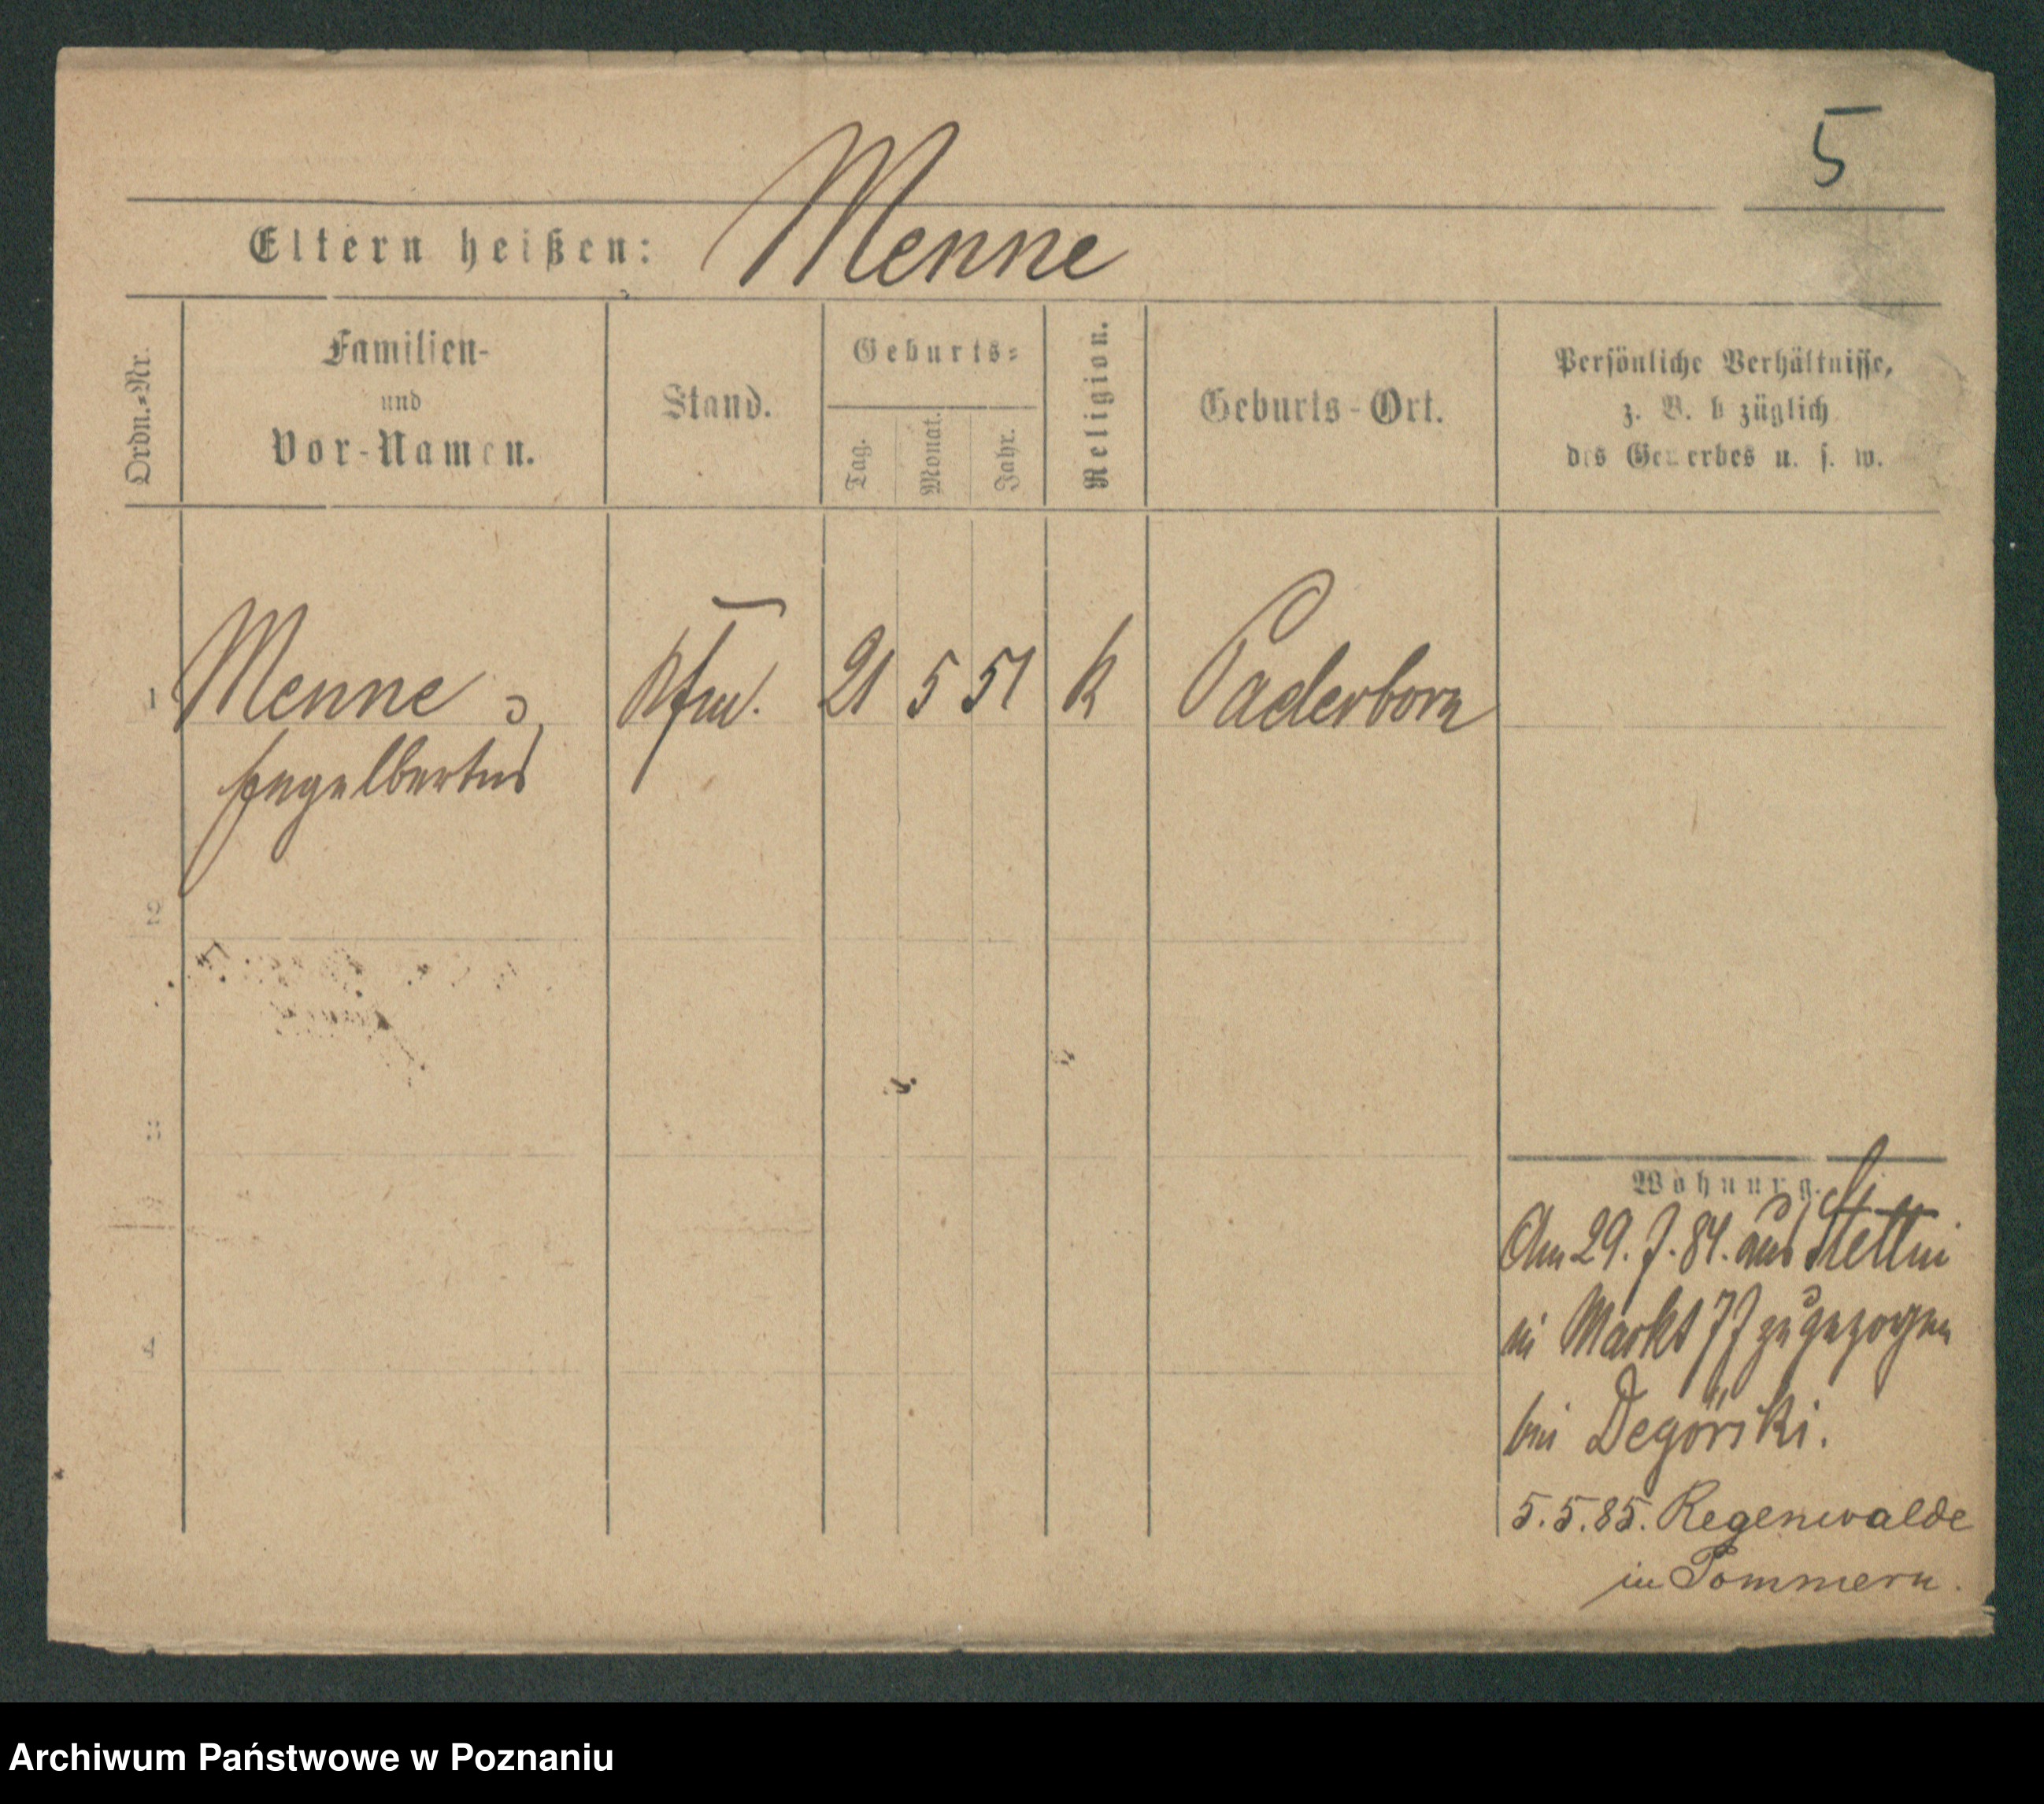 5
Eltern heißen: Menne
Ordn.-Nr.
Familien-
und
Vor-Namen.
Stand.
Geburts-
Tag.
Monat.
Jahr.
Religion.
Geburts-Ort.
Persönliche Verhältnisse,
z. B. bezüglich
des Gewerbes u. s. w.
1 Menne, Kfm. 21 5 51 k Paderborn
Engelbertus
2
3
4
Wohnung.
Am 29. 7. 84. aus Stettin
in Markt 77 zugezogen
bei Degörski.
5.5.85. Regenwalde
in Pommern.
Archiwum Państwowe w Poznaniu